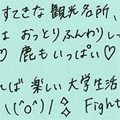 すてきな観光名所、
は おっとりふんわりしっ
♡ 鹿もいっぱい♡
れば 楽しい 大学生活
\(^o^)/ Fight